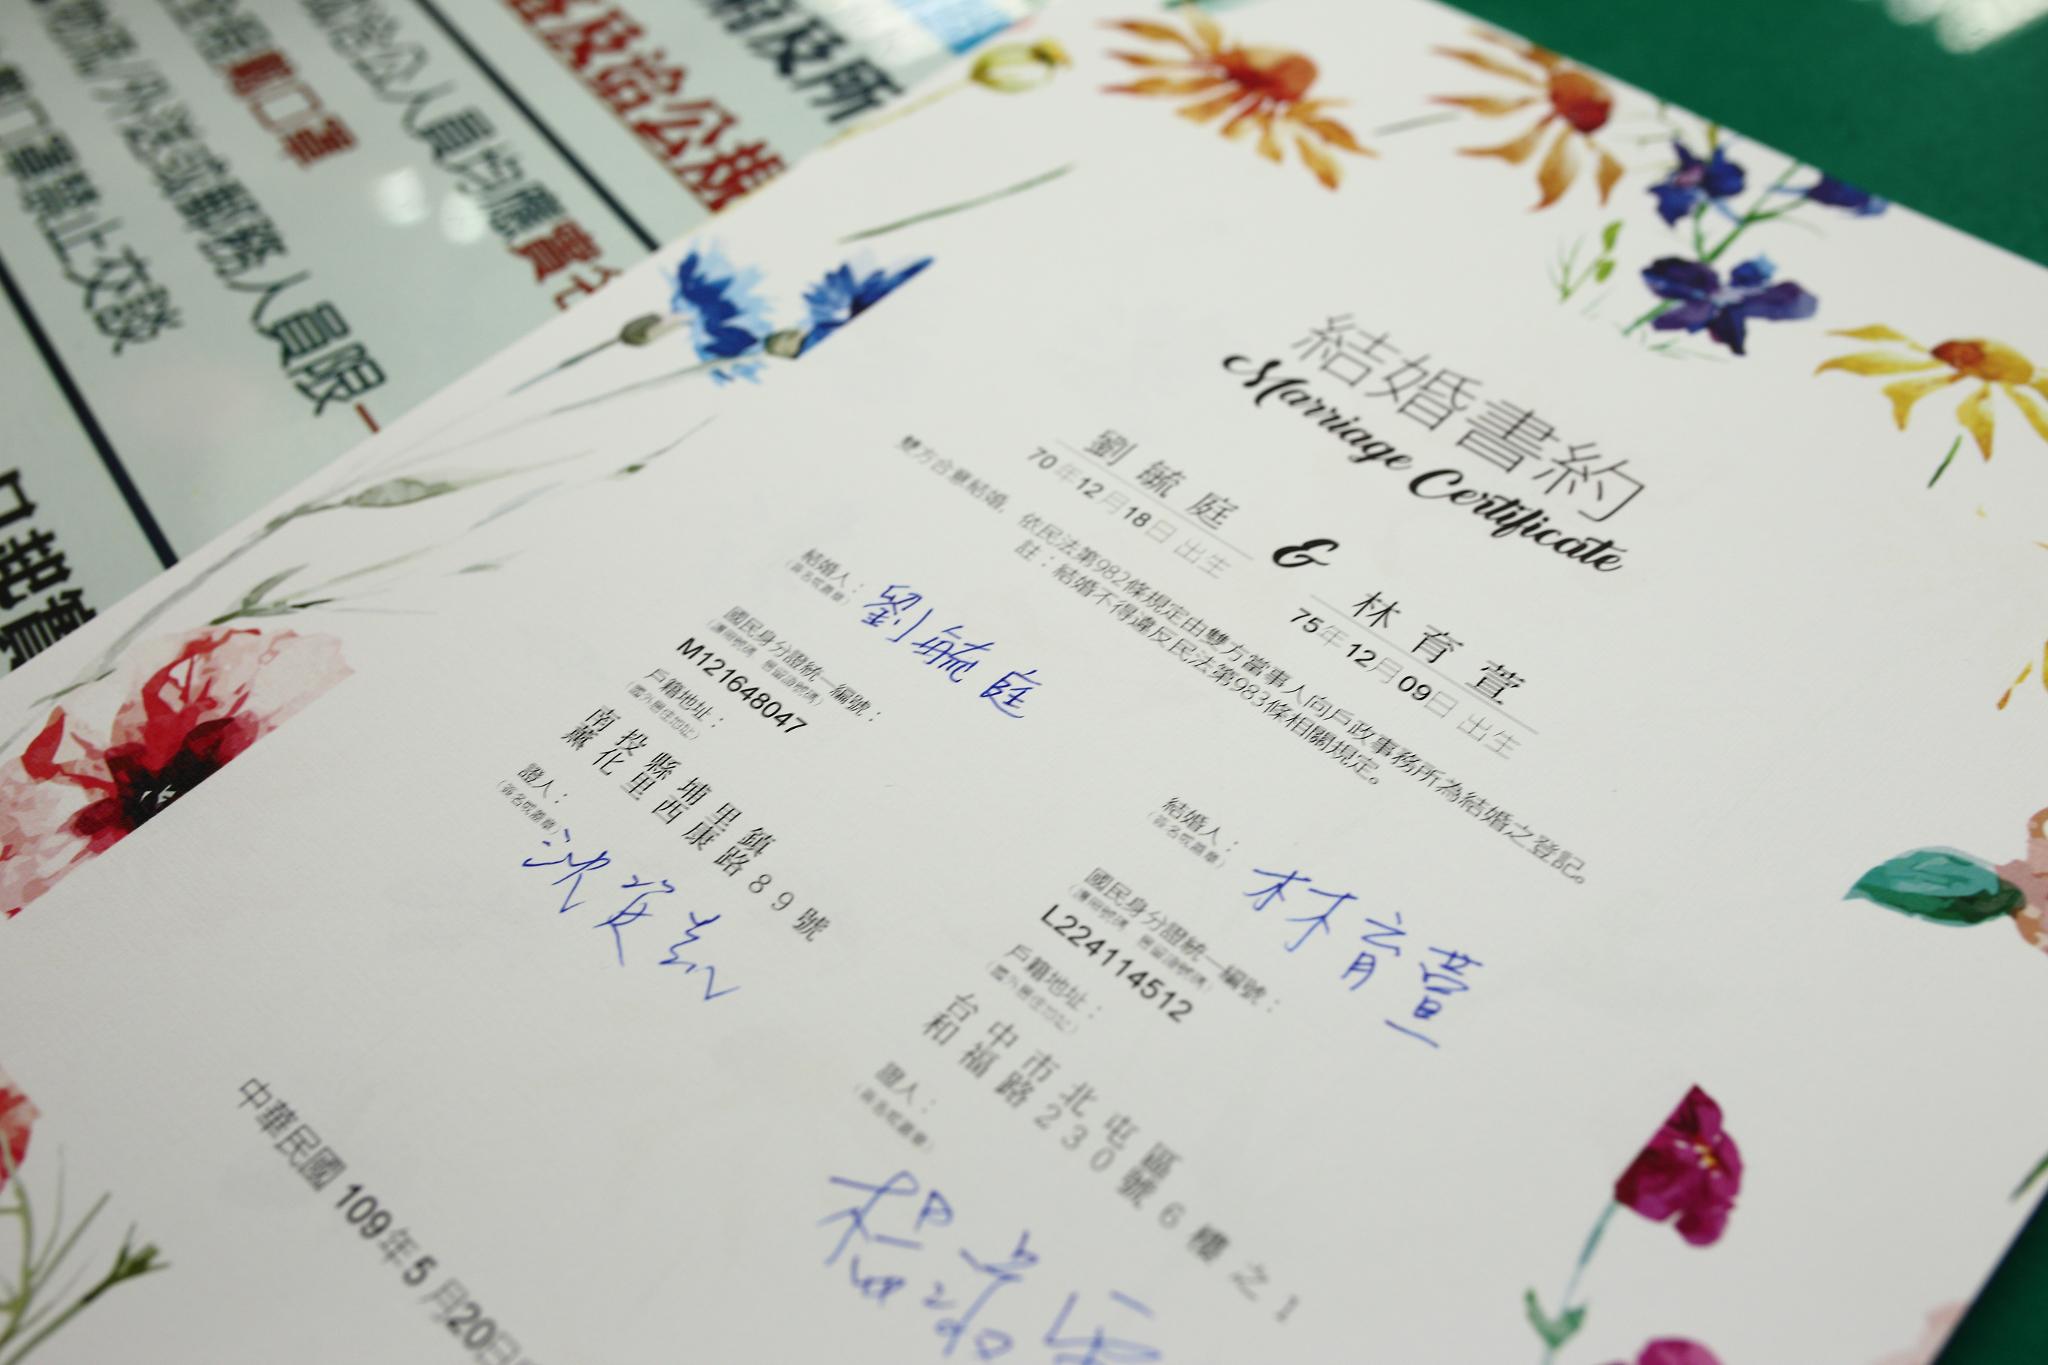 結婚書約
Marriage Certificate
劉毓庭
70年12月18日 出生
&
林育萱
75年12月09日 出生
雙方合意結婚，依民法第982條規定由雙方當事人向戶政事務所為結婚之登記。
註：結婚不得違反民法第983條相關規定。
結婚人：
（簽名或蓋章）
劉毓庭
國民身分證統一編號：
（護照號碼 居留證號碼）
M121648047
戶籍地址：
（國外居住地址）
南投縣埔里鎮
薰化里西康路89號
證人：
（簽名或蓋章）
結婚人：
（簽名或蓋章）
林育萱
國民身分證統一編號：
（護照號碼 居留證號碼）
L224114512
戶籍地址：
（國外居住地址）
台中市北屯區
和福路230號6樓之1
證人：
（簽名或蓋章）
中華民國 109年5月20日
及洽公
人員均應實
戴口罩
郵務人員限一
口罩禁止交談